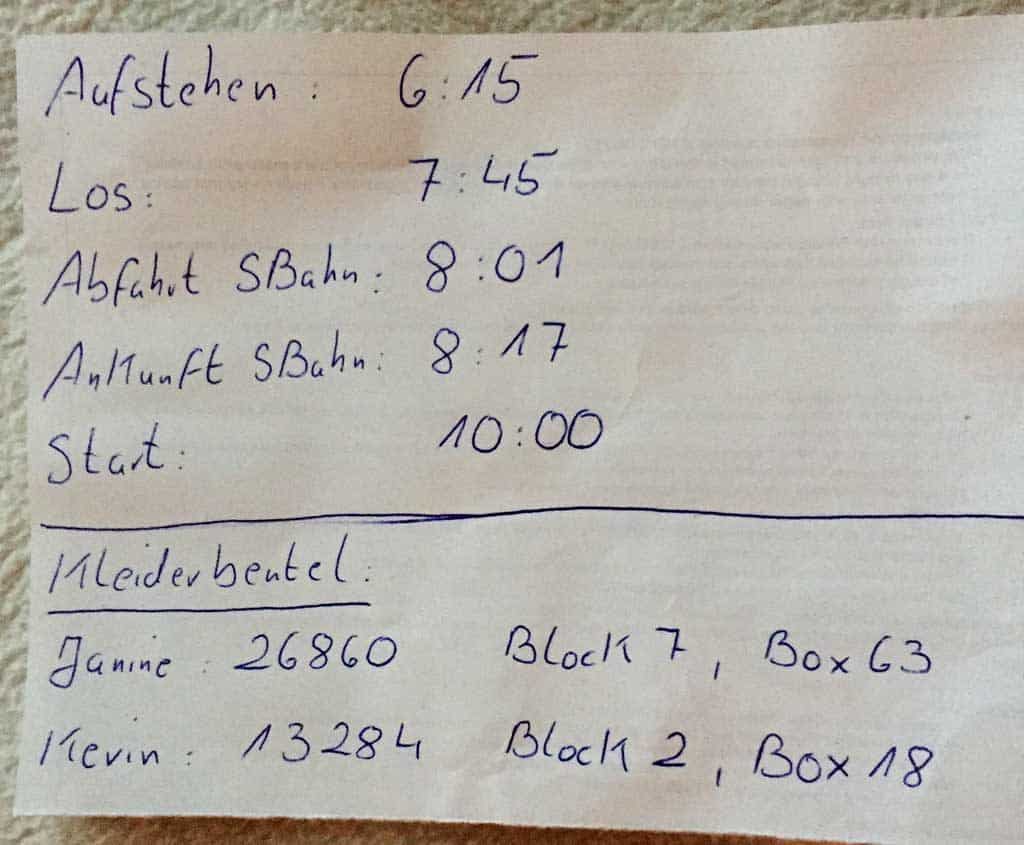 Aufstehen: 6:15
Los: 7:45
Abfahrt SBahn: 8:01
Ankunft SBahn: 8:17
Start: 10:00
Kleiderbeutel:
Janine: 26860 Block 7, Box 63
Kevin: 13284 Block 2, Box 18